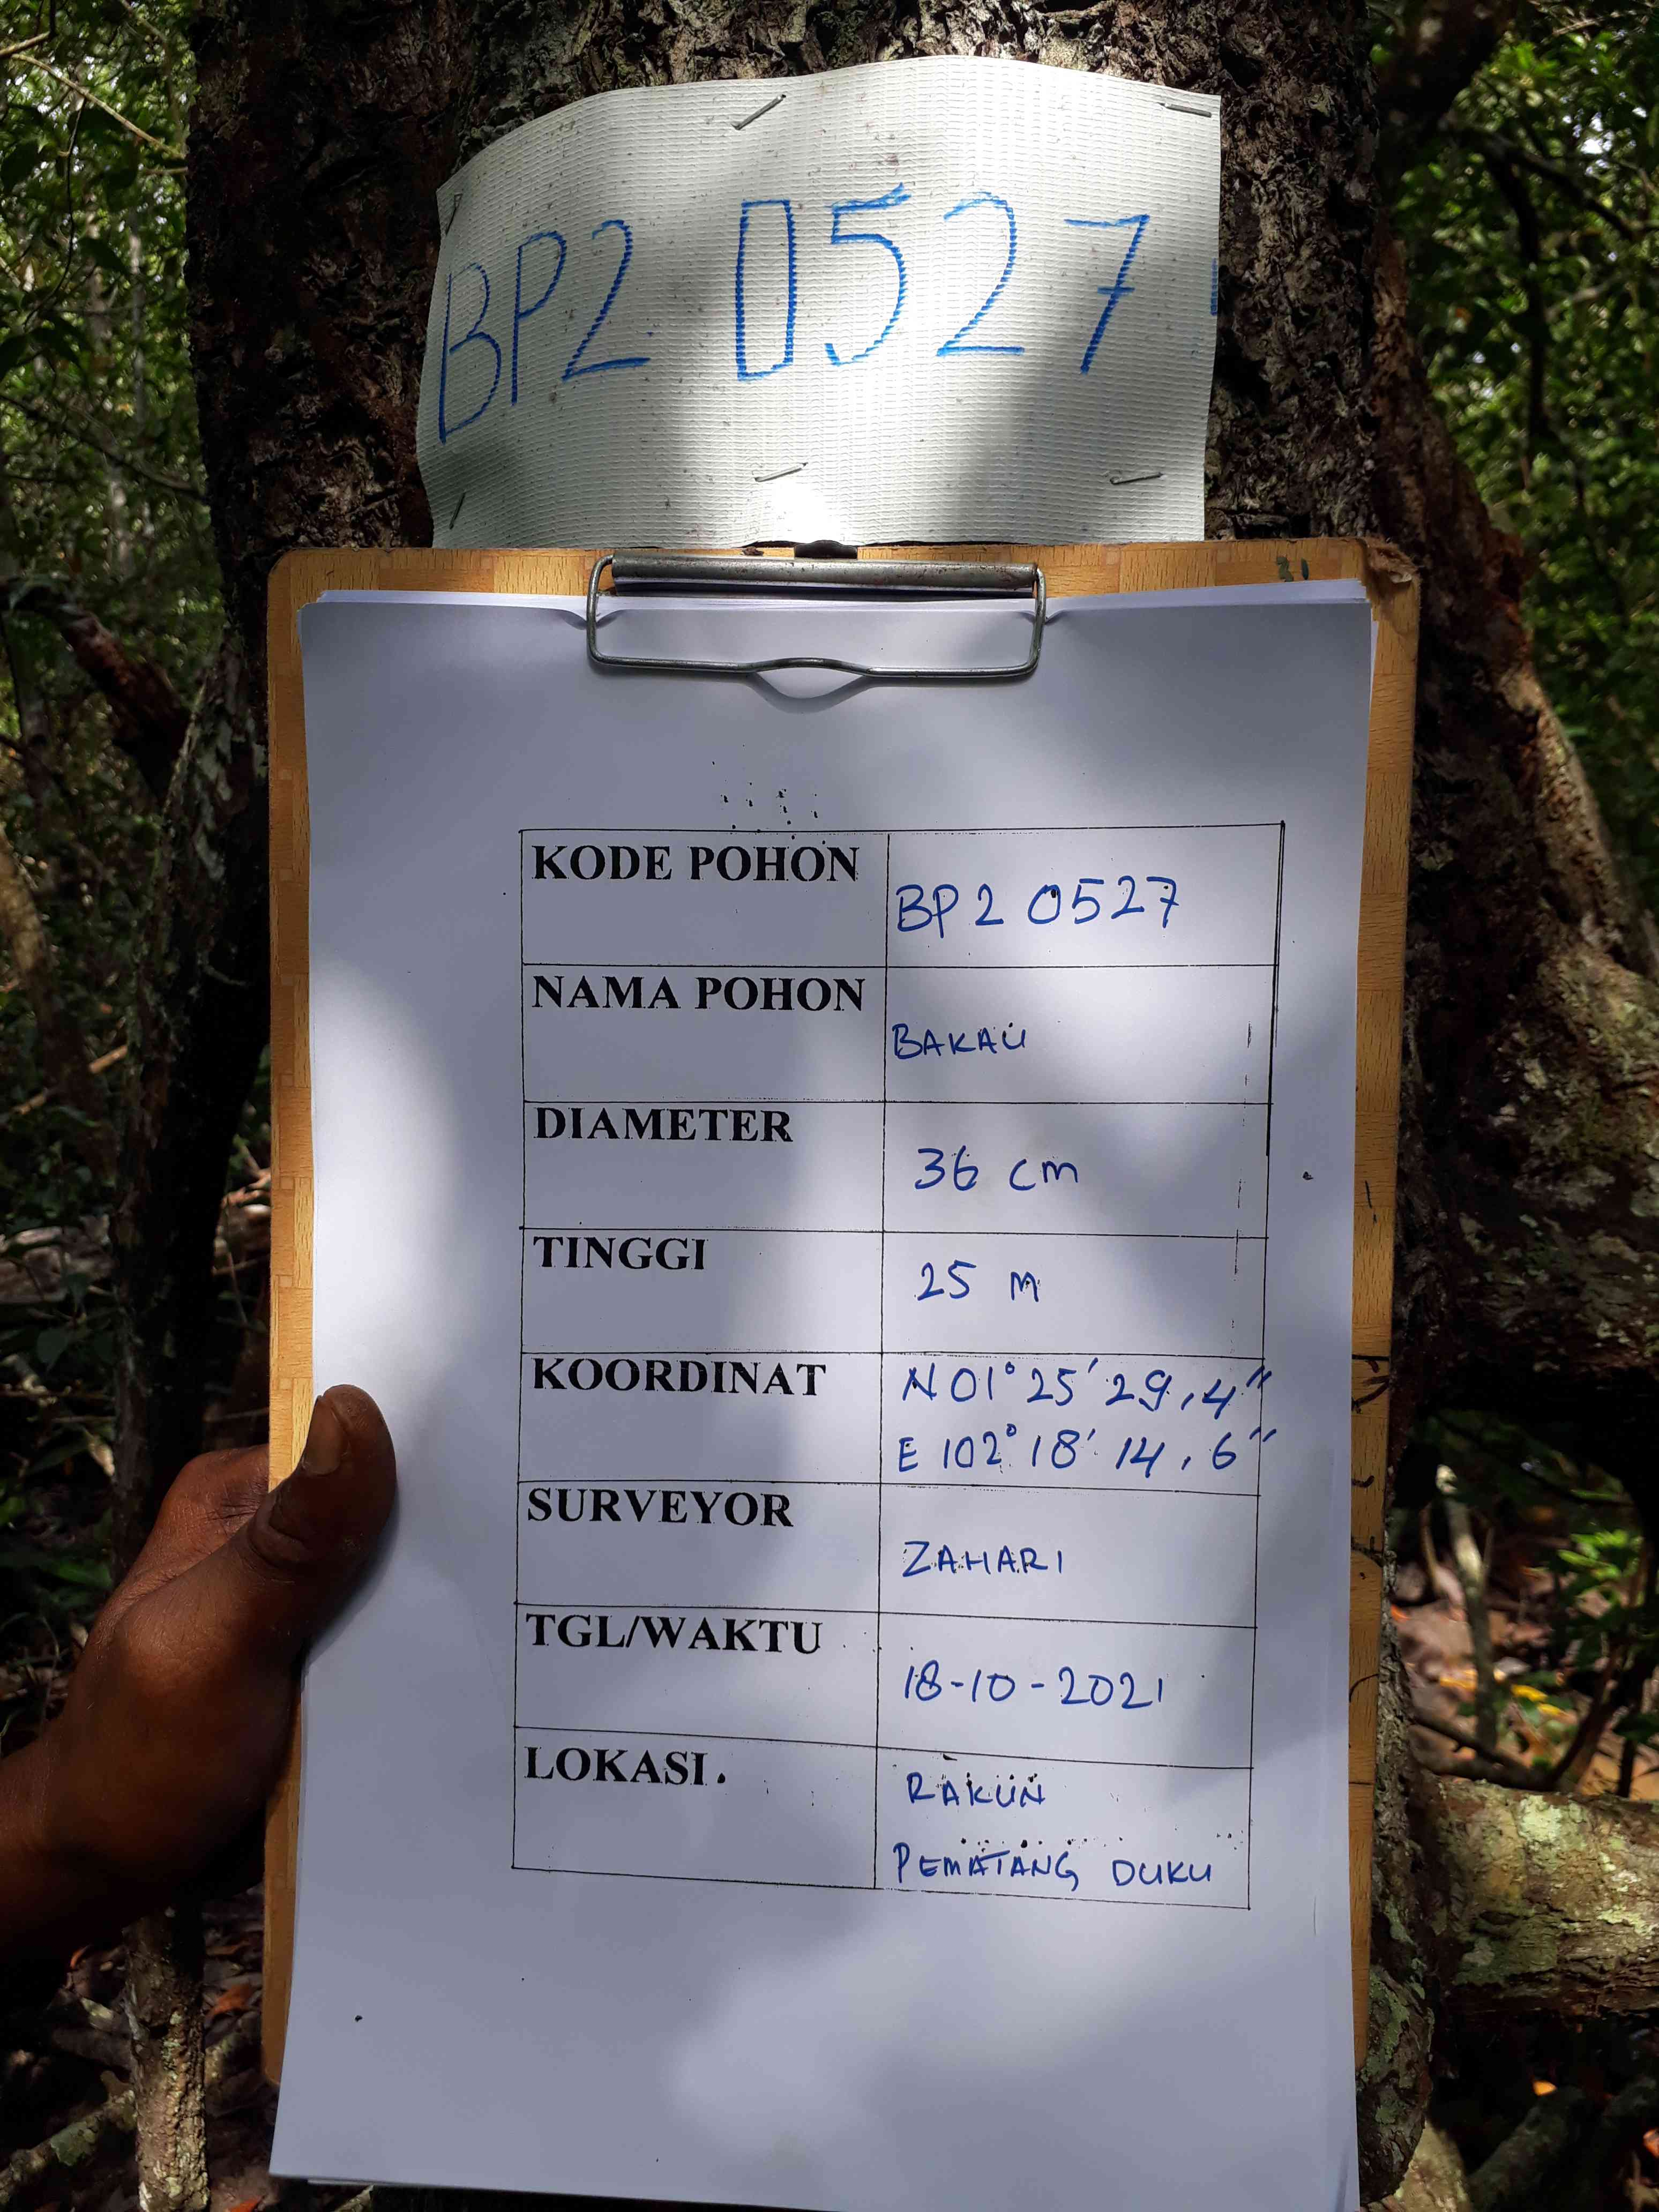 BP2 0527
KODE POHON
BP2 0527
NAMA POHON
BAKAU
DIAMETER
36 cm
TINGGI
25 M
KOORDINAT
N 01° 25' 29,4"
E 102° 18' 14,6"
SURVEYOR
ZAHARI
TGL/WAKTU
18-10-2021
LOKASI.
RAKUN
PEMATANG DUKU